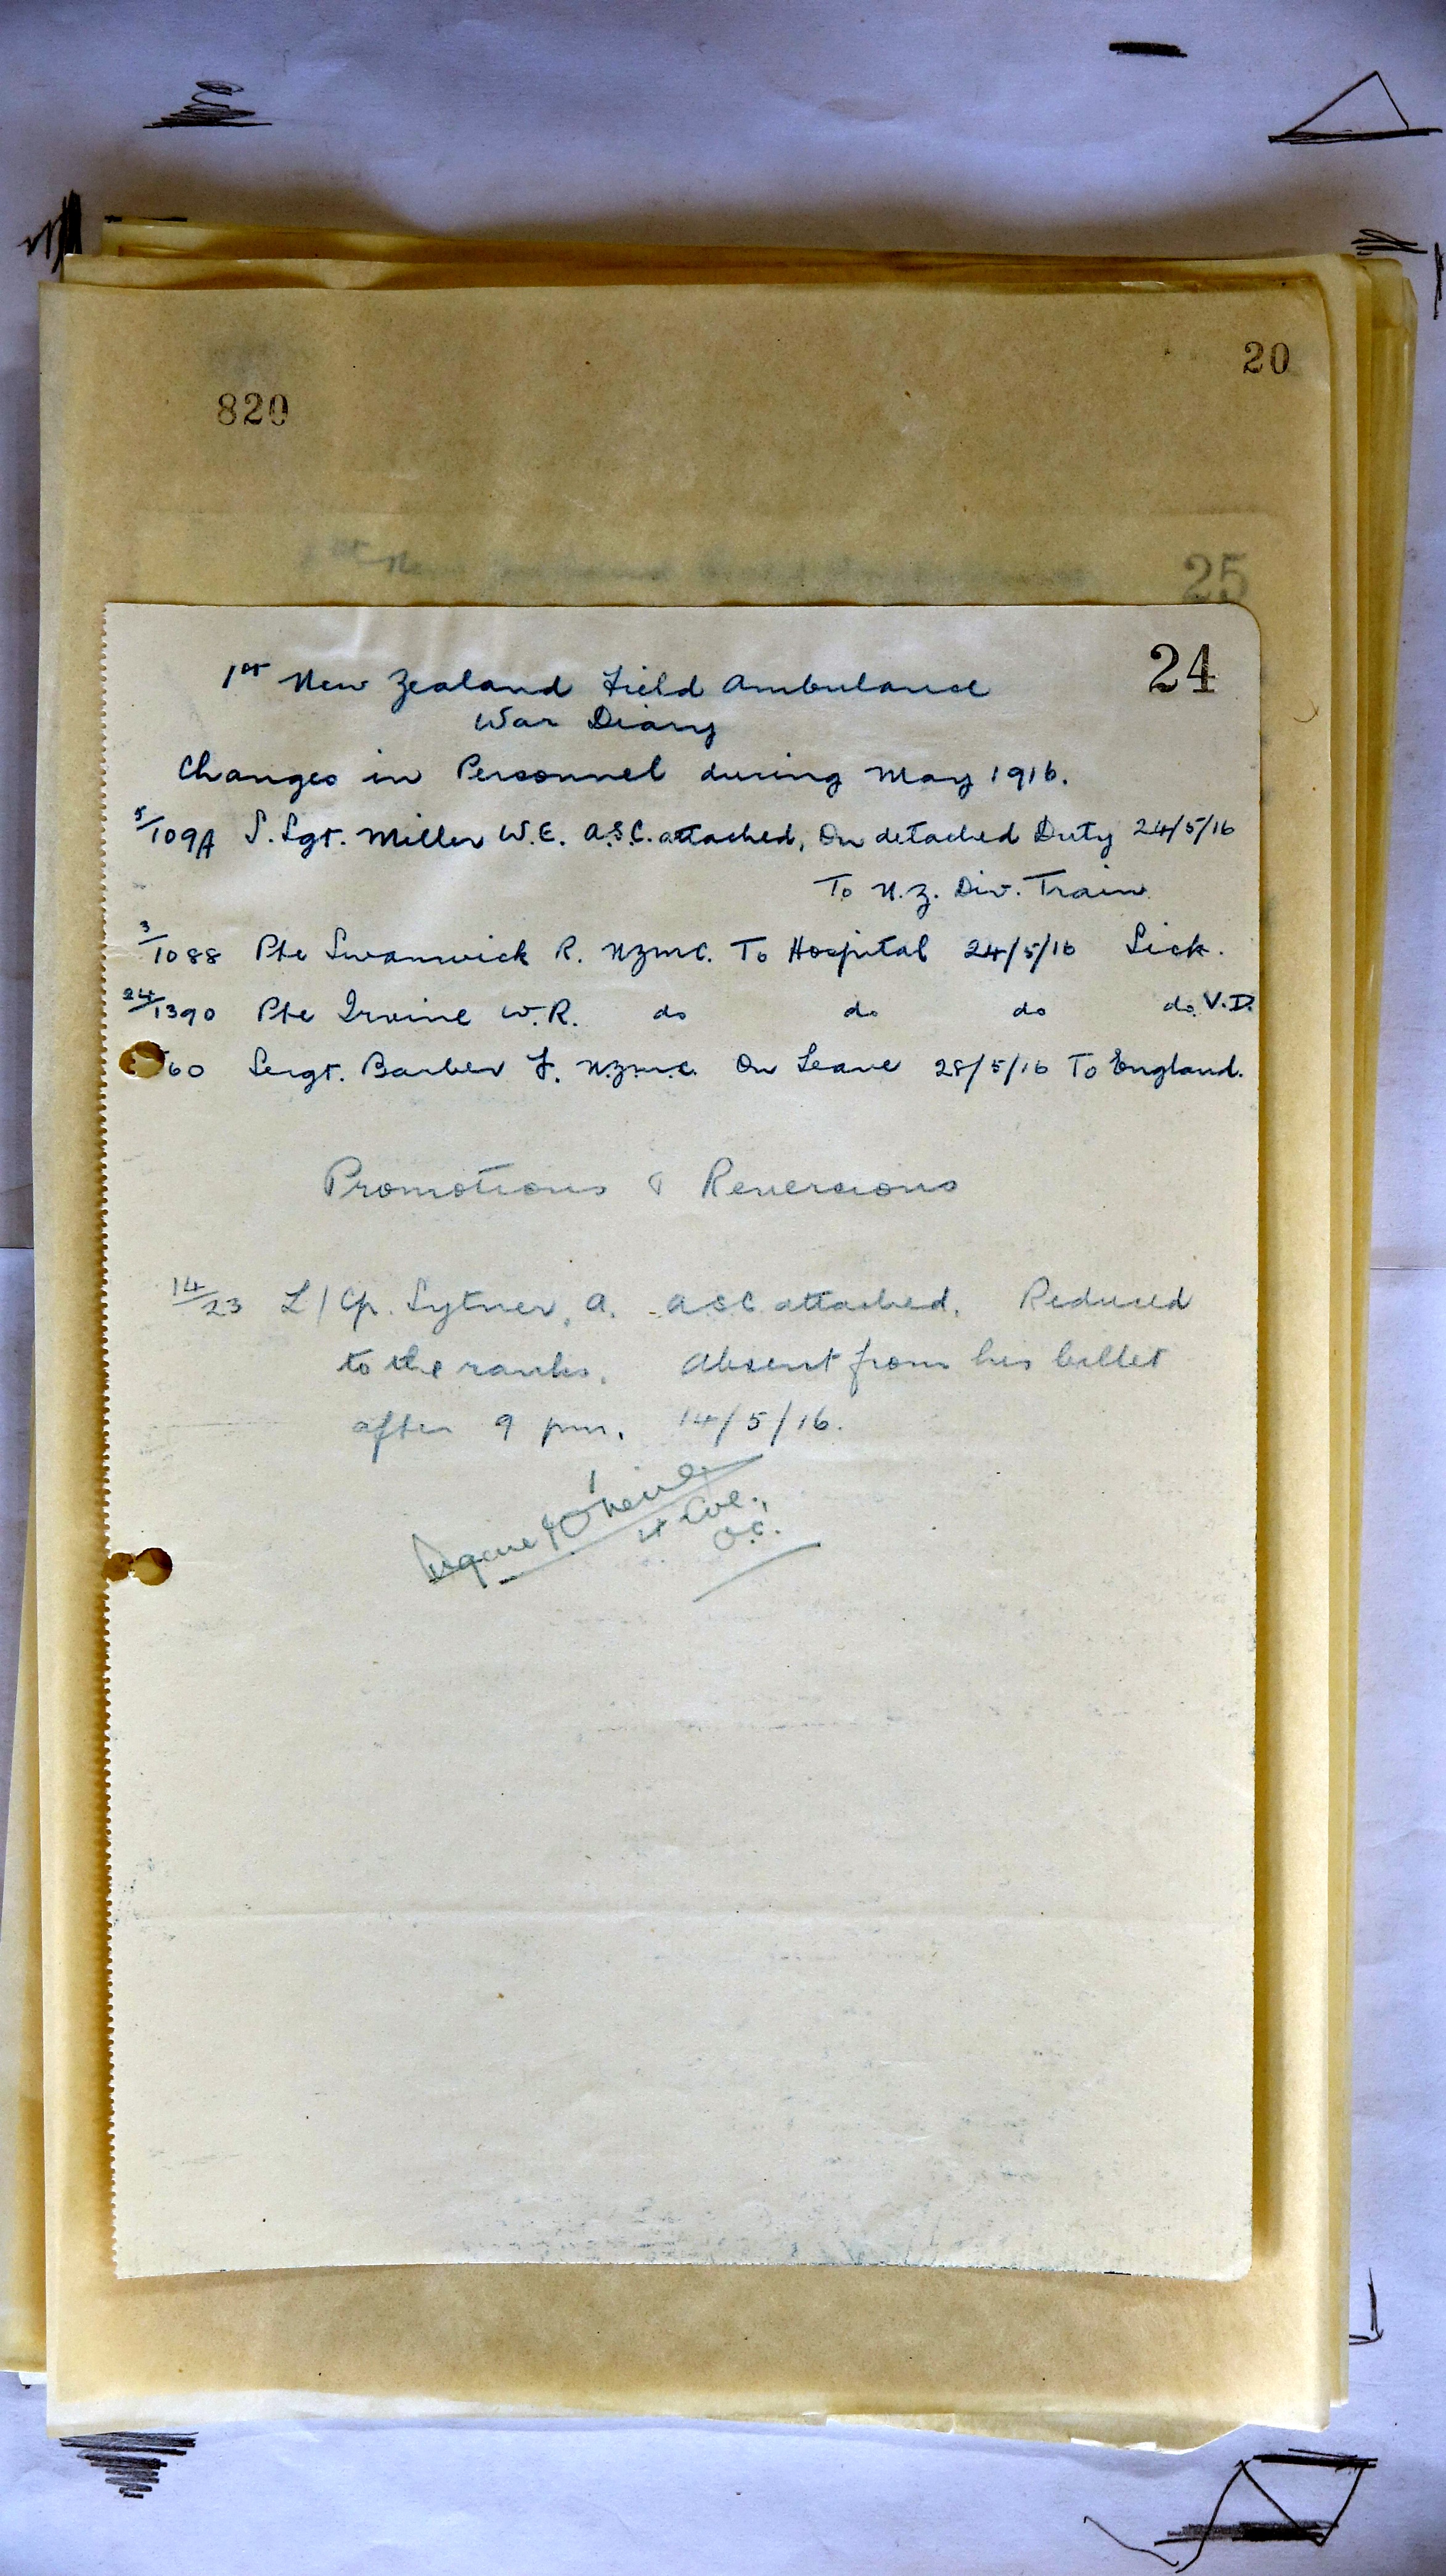 20
820
25
24
1st New Zealand Field Ambulance
War Diary
Changes in Personnel during May 1916.
5/109A S. Sgt. Miller W.E. A.S.C. attached, On detached Duty 24/5/16
To N.Z. Div. Train
3/1088 Pte Swanwick R. NZMC. To Hospital 24/5/16 Sick.
24/1390 Pte Irvine W.R. do do do do V.D.
60 Sergt. Barber F. N.Z.M.C. On Leave 28/5/16 To England.
Promotions & Reversions
14/23 L/Cp. Sytner, A. A.S.C. attached. Reduced
to the ranks. Absent from his billet
after 9 pm. 14/5/16.
O'Neill
Lt Col.,
O.C.